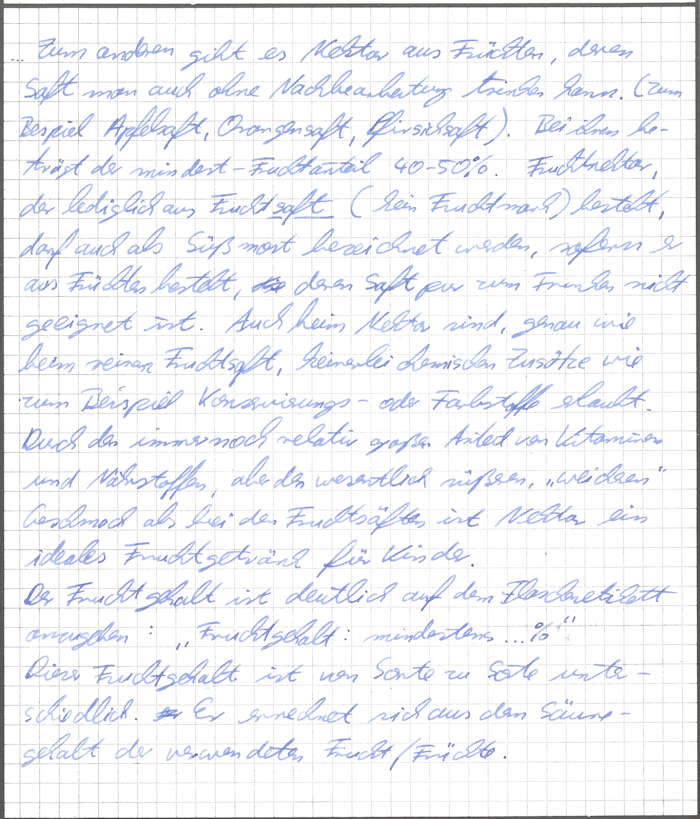 ... Zum anderen gibt es Nektar aus Früchten, deren
Saft man auch ohne Nachbearbeitung trinken kann. (Zum
Beispiel Apfelsaft, Orangensaft, Pfirsichsaft). Bei ihnen be-
trägt der mindest-Fruchtanteil 40-50%. Fruchtnektar,
der lediglich aus Fruchtsaft (kein Fruchtmark) besteht,
darf auch als Süßmost bezeichnet werden, sofern er
aus Früchten besteht, deren Saft pur zum Trinken nicht
geeignet ist. Auch beim Nektar sind, genau wie
beim reinen Fruchtsaft, keinerlei chemischen Zusätze wie
zum Beispiel Konservierungs- oder Farbstoffe erlaubt.
Durch den immernoch relativ großen Anteil von Vitaminen
und Nährstoffen, aber den wesentlich süßeren, „weicheren"
Geschmack als bei den Fruchtsäften ist Nektar ein
ideales Fruchtgetränk für Kinder.
Der Fruchtgehalt ist deutlich auf dem Flaschenetikett
anzugeben: „Fruchtgehalt: mindestens...%"
Dieser Fruchtgehalt ist von Sorte zu Sorte unter-
schiedlich. Er errechnet sich aus dem Säure-
gehalt der verwendeten Frucht/Früchte.